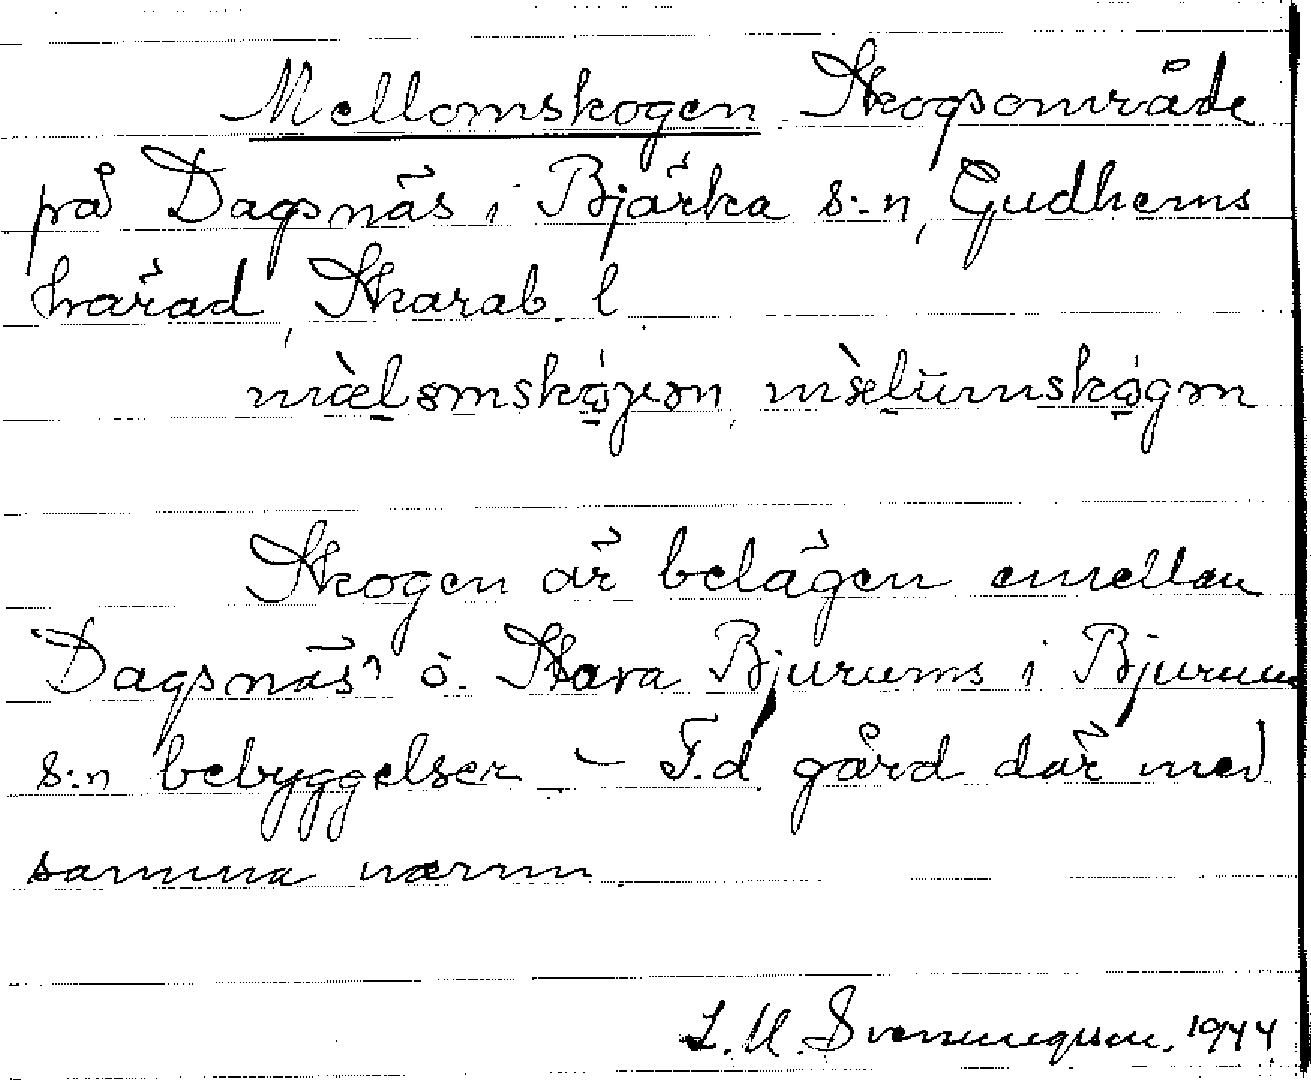 Mellomskogen Skogsområde
på Dagsnäs i Bjärka s:n, Gudhems
härad, Skarab. l.
Skogen är belägen emellan
Dagsnäs' o. Stora Bjurums i Bjurum
s:n bebyggelser – F.d. gård där med
samma namn.
L. M. Svenungsson. 1944